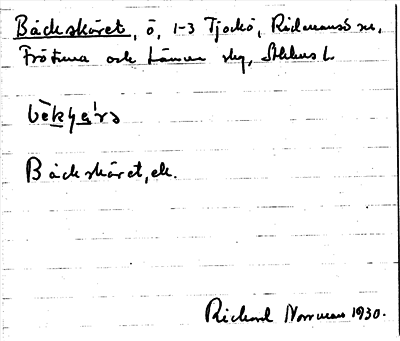 Bäckskäret, ö, 1-3 Tjockö, Rådmansö sn,
Frötuna och Länna skg, Sthlms l.
Bäckskäret, ek.
Richard Norrman 1930.